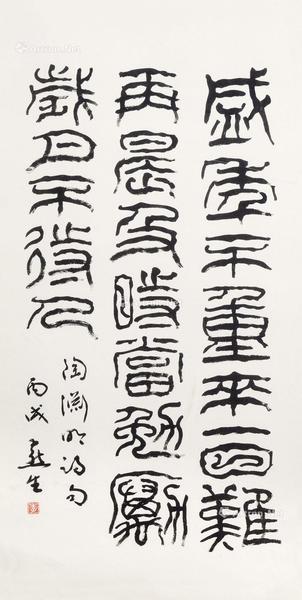 盛年不重來一日難
再晨及時當勉勵
歲月不待人
陶淵明詩句
丙戌 生